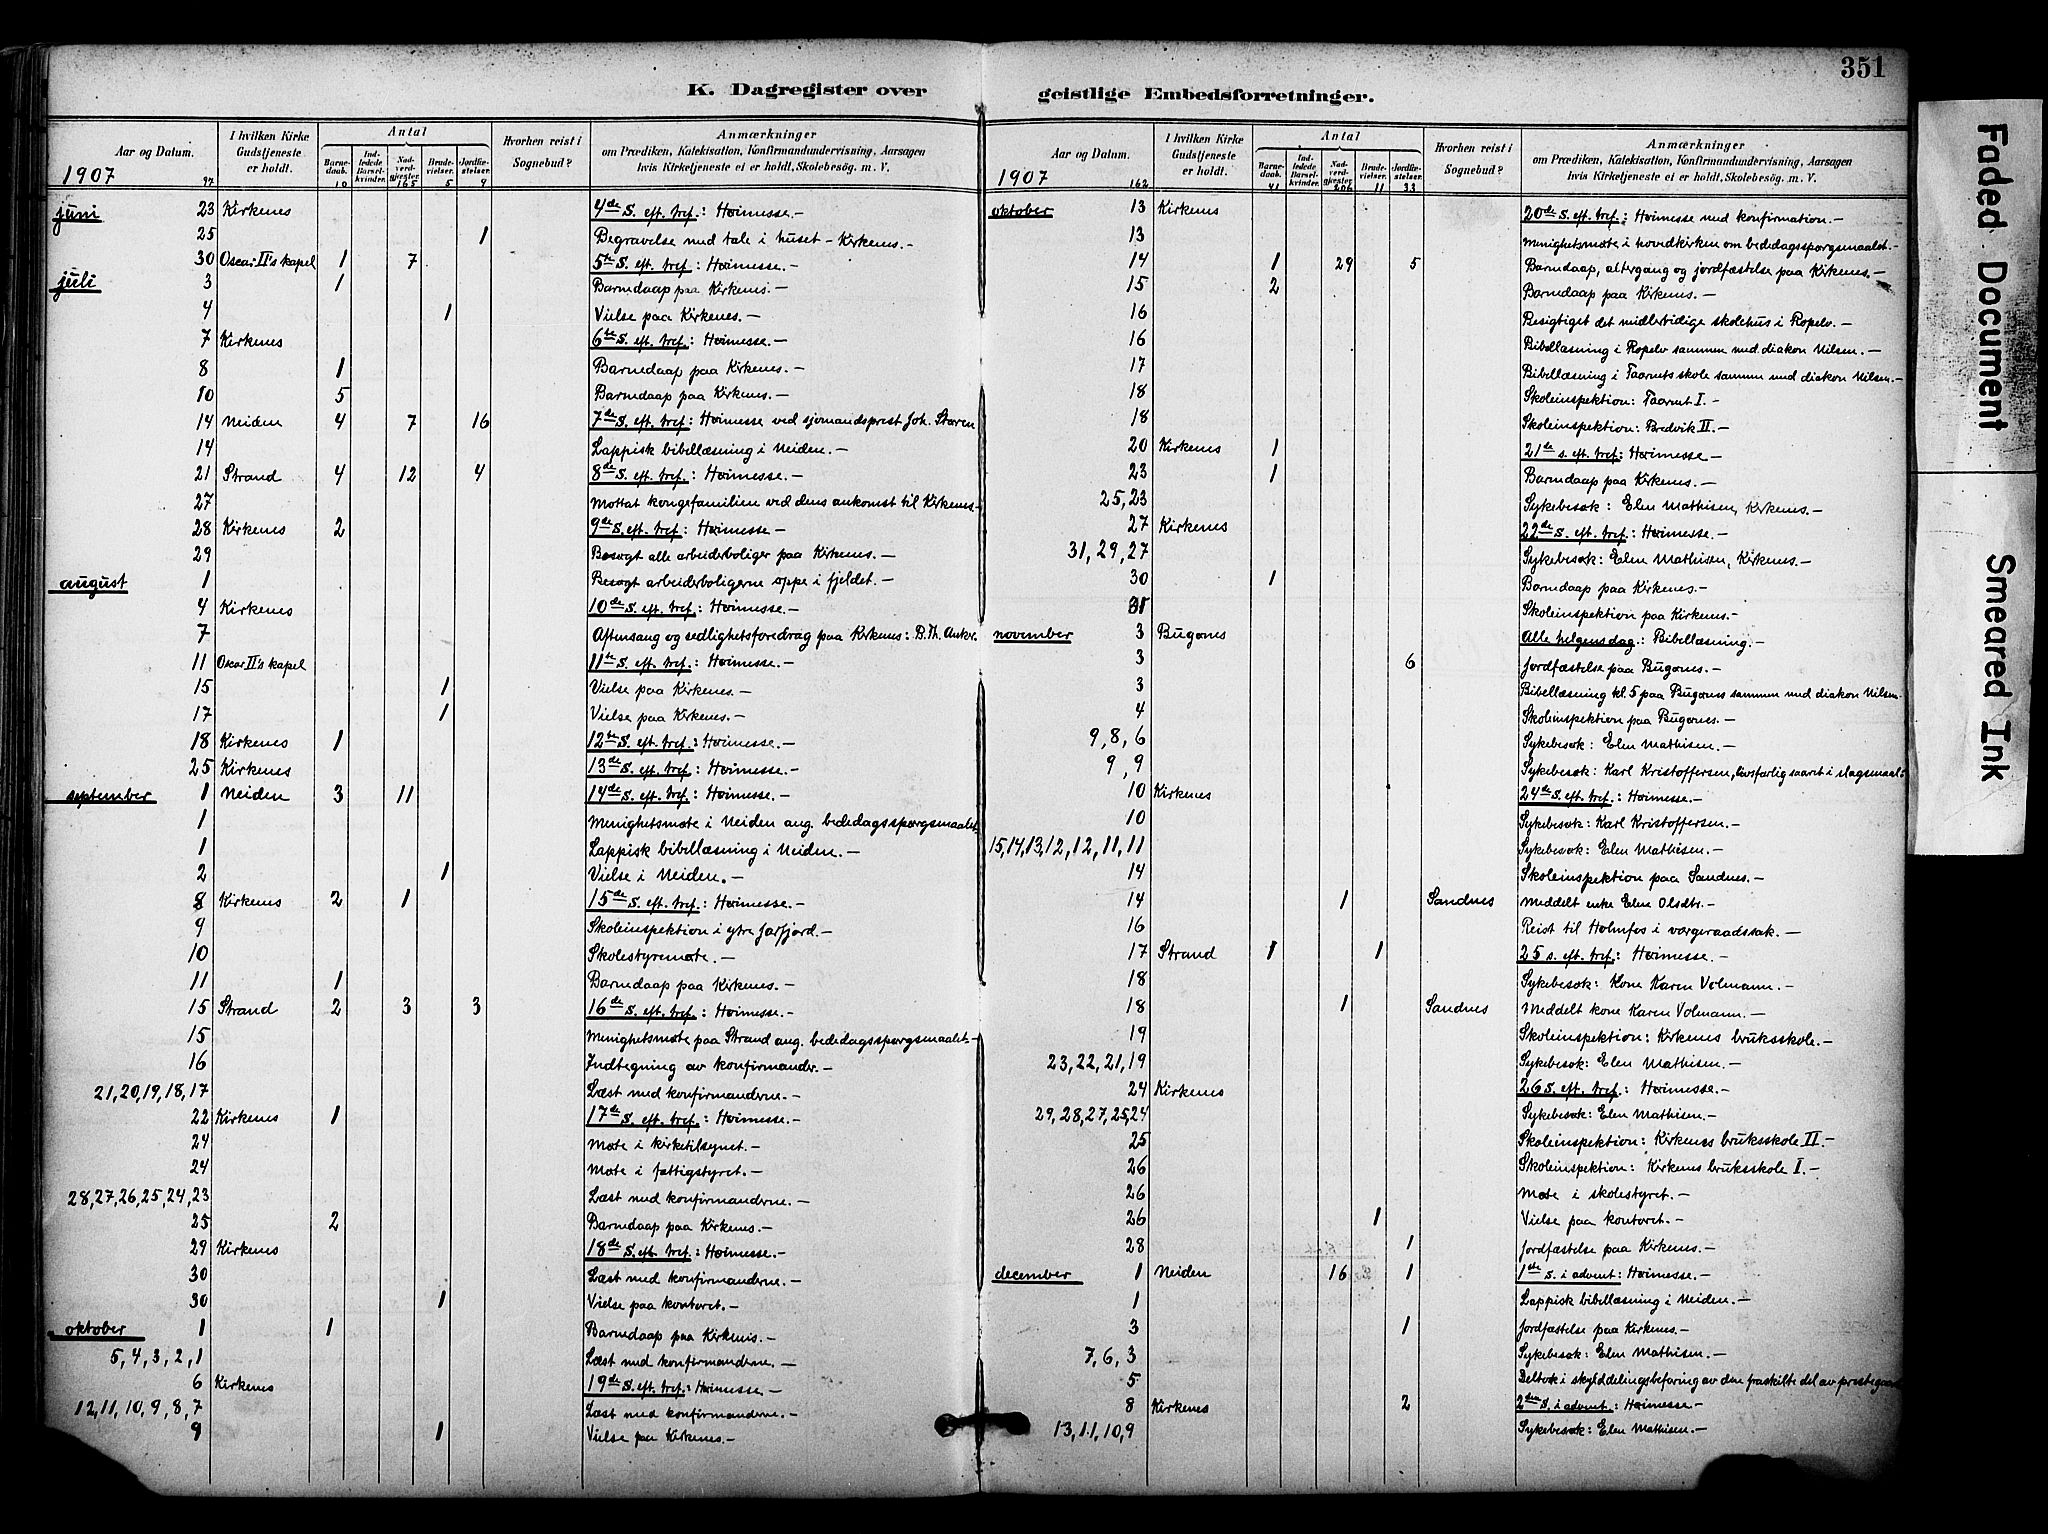 351
K. Dagregister over geistlige Embedsforretninger.
Aar og Datum.
I hvilken Kirke Gudstjeneste er holdt.
Antal
Barne-daab.
Ind-ledede Barsel-kvinder.
Nad-verd-gjester.
Brude-vielser.
Jordfæ-stelser.
Hvorhen reist i Sognebud?
Anmærkninger
om Prædiken, Katekisation, Konfirmandundervisning, Aarsagen
hvis Kirketjeneste ei er holdt, Skolebesøg. m. V.
1907 97 10 165 5 9
juni 23 Kirkenes 4de S. eft. tref.: Høimesse.-
25 1 Begravelse med tale i huset - Kirkenes.-
30 Oscar II's kapel 1 7 5te S. eft. tref.: Høimesse.-
juli 3 1 Barnedaap paa Kirkenes.-
4 1 Vielse paa Kirkenes.-
7 Kirkenes 6te S. eft. tref.: Høimesse.-
8 1 Barnedaap paa Kirkenes.-
10 5 Barnedaap paa Kirkenes.-
14 Neiden 4 7 16 7de S. eft. tref: Høimesse ved sjømandsprest Joh. Støren
14 Lappisk bibellæsning i Neiden.-
21 Strand 4 12 4 8de S. eft. tref.: Høimesse.-
27 Mottat kongefamilien ved dens ankomst til Kirkenes.-
28 Kirkenes 2 9de S. eft. tref.: Høimesse.-
29 Besøgt alle arbeiderboliger paa Kirkenes.-
august 1 Besøgt arbeiderboligerne oppe i fjeldet.-
4 Kirkenes 10de S. eft. tref.: Høimesse.-
7 Aftensang og sedlighetsforedrag paa Kirkenes: B. Th. Anker.
11 Oscar II's kapel 11te S. eft. tref.: Høimesse.-
15 1 Vielse paa Kirkenes.-
17 1 Vielse paa Kirkenes.-
18 Kirkenes 1 12te S. eft. tref.: Høimesse.-
25 Kirkenes 13de S. eft. tref.: Høimesse.-
september 1 Neiden 3 11 14de S. eft. tref.: Høimesse.-
1 Menighetsmøte i Neiden ang. bededagsspørgsmaalet.
1 Lappisk bibellæsning i Neiden.-
2 1 Vielse i Neiden.-
8 Kirkenes 2 1 15de S. eft. tref.: Høimesse.-
9 Skoleinspektion i ytre Jarfjord.-
10 Skolestyremøte.-
11 1 Barnedaap paa Kirkenes.-
15 Strand 2 3 3 16de S. eft. tref.: Høimesse.-
15 Menighetsmøte paa Strand ang. bededagsspørgsmaalet.-
16 Indtegning av konfirmander.-
21, 20, 19, 18, 17 Læst med konfirmanderne.-
22 Kirkenes 1 17de S. eft. tref.: Høimesse.-
24 Møte i kirketilsynet.-
24 Møte i fattigstyret.-
28, 27, 26, 25, 24, 23 Læst med konfirmanderne.-
25 2 Barnedaap paa Kirkenes.-
29 Kirkenes 18de S. eft. tref.: Høimesse.-
30 Læst med konfirmanderne.-
30 1 Vielse paa kontoret.-
oktober 1 1 Barnedaap paa Kirkenes.-
5, 4, 3, 2, 1 Læst med konfirmanderne.-
6 Kirkenes 19de S. eft. tref.: Høimesse.-
12, 11, 10, 9, 8, 7 Læst med konfirmanderne.-
9 1 Vielse paa Kirkenes.-
Aar og Datum.
I hvilken Kirke Gudstjeneste er holdt.
Antal
Barne-daab.
Ind-ledede Barsel-kvinder.
Nad-verd-gjester.
Brude-vielser.
Jordfæ-stelser.
Hvorhen reist i Sognebud?
Anmærkninger
om Prædiken, Katekisation, Konfirmandundervisning, Aarsagen
hvis Kirketjeneste ei er holdt, Skolebesøg. m. V.
1907 162 41 206 11 33
oktober 13 Kirkenes 20de S. eft. tref.: Høimesse med konfirmation.-
13 Menighetsmøte i hovedkirken om bededagsspørgsmaalet.-
14 1 29 5 Barnedaap, altergang og jordfæstelse paa Kirkenes.-
15 2 Barnedaap paa Kirkenes.-
16 Besigtiget det midlertidige skolehus i Ropelv.-
16 Bibellæsning i Ropelv sammen med diakon Nilsen.-
17 Bibellæsning i Taarnets skole sammen med diakon Nilsen.-
18 Skoleinspektion: Taarnet I.-
18 Skoleinspektion: Bredvik II.-
20 Kirkenes 1 21de s. eft. tref: Høimesse.-
23 1 Barnedaap paa Kirkenes.-
25, 23 Sykebesøk: Elen Mathisen, Kirkenes.-
27 Kirkenes 22de s. eft. tref.: Høimesse.-
31, 29, 27 Sykebesøk: Elen Mathisen, Kirkenes.-
30 1 Barnedaap paa Kirkenes.-
31 Skoleinspektion paa Kirkenes.-
november 3 Bugønes Alle helgensdag: Bibellæsning.-
3 6 Jordfæstelse paa Bugønes.-
3 Bibellæsning kl. 5 paa Bugønes sammen med diakon Nilsen.-
4 Skoleinspektion paa Bugønes.-
9, 8, 6 Sykebesøk: Elen Mathisen.-
9, 9 Sykebesøk: Karl Kristoffersen, livsfarlig saaret i slagsmaal.-
10 Kirkenes 24de S. eft. tref.: Høimesse.-
10 Sykebesøk: Karl Kristoffersen.-
15, 14, 13, 12, 12, 11, 11 Sykebesøk: Elen Mathisen.-
14 Skoleinspektion paa Sandnes.-
14 1 Sandnes Meddelt enke Elen Olsdtr.-
16 Reist til Holmfos i værgeraadssak.-
17 Strand 1 1 25 s. eft. tref.: Høimesse.-
18 Sykebesøk: Kone Karen Volmann.-
18 1 Sandnes Meddelt kone Karen Volmann.-
19 Skoleinspektion: Kirkenes bruksskole.-
23, 22, 21, 19 Sykebesøk: Elen Mathisen.-
24 Kirkenes 26 S. eft. tref.: Høimesse.-
29, 28, 27, 25, 24 Sykebesøk: Elen Mathisen.-
25 Skoleinspektion: Kirkenes bruksskole II.-
26 Skoleinspektion: Kirkenes bruksskole I.-
26 Møte i skolestyret.-
26 1 Vielse paa kontoret.-
28 1 Jordfæstelse paa Kirkenes.-
december 1 Neiden 16 1 1ste s. i advent: Høimesse.-
1 Lappisk bibellæsning i Neiden.-
3 1 Jordfæstelse paa Kirkenes.-
7, 6, 3 Sykebesøk: Elen Mathisen.-
5 Deltok i skylddelingsbefaring av den fraskilte del av prestegaard
8 Kirkenes 2 2den S. i advent: Høimesse.-
13, 11, 10, 9 Sykebesøk: Elen Mathisen.-
Faded Document
Smeared Ink